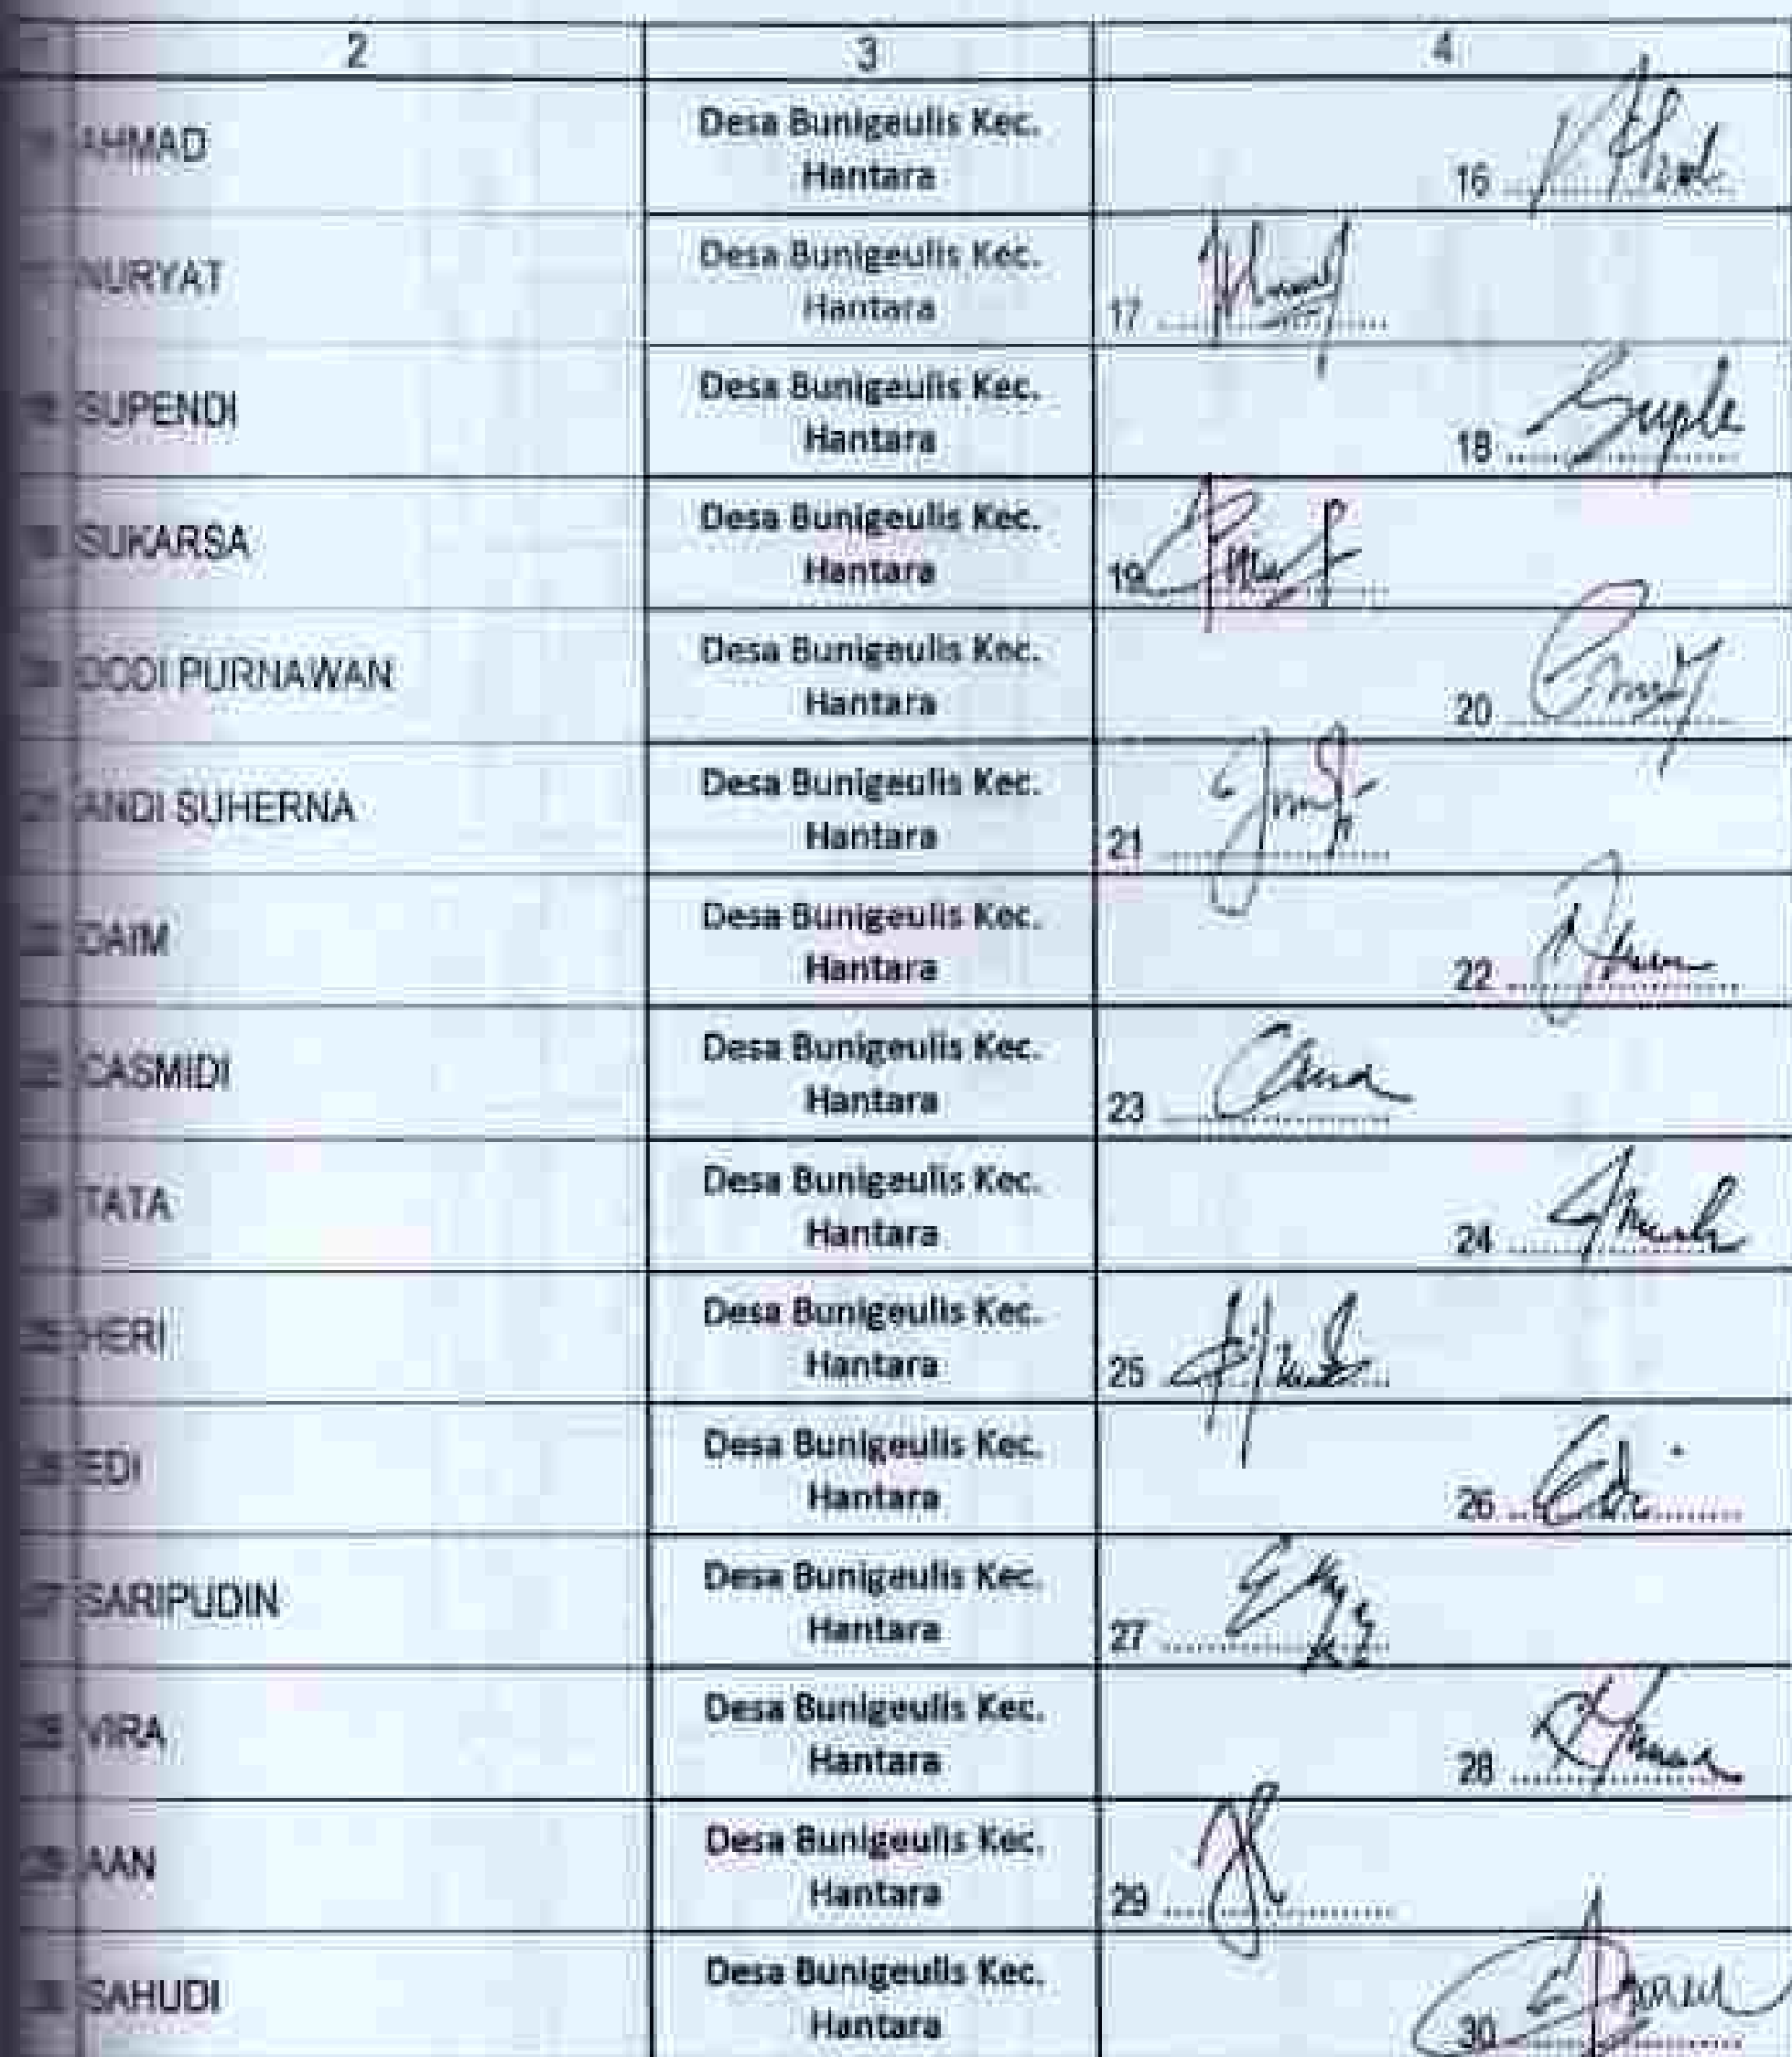 2 3 4
AHMAD Desa Bunigeulis Kec.
Hantara 16
NURYAT Desa Bunigeulis Kec.
Hantara 17
SUPENDI Desa Bunigeulis Kec.
Hantara 18
SUKARSA Desa Bunigeulis Kec.
Hantara 19
DODI PURNAWAN Desa Bunigeulis Kec.
Hantara 20
ANDI SUHERNA Desa Bunigeulis Kec.
Hantara 21
DAIM Desa Bunigeulis Kec.
Hantara 22
CASMIDI Desa Bunigeulis Kec.
Hantara 23
TATA Desa Bunigeulis Kec.
Hantara 24
25 HERI Desa Bunigeulis Kec.
Hantara 25
EDI Desa Bunigeulis Kec.
Hantara 26 Edi
27 SARIPUDIN Desa Bunigeulis Kec.
Hantara 27
VIRA Desa Bunigeulis Kec.
Hantara 28
AAN Desa Bunigeulis Kec.
Hantara 29
SAHUDI Desa Bunigeulis Kec.
Hantara 30